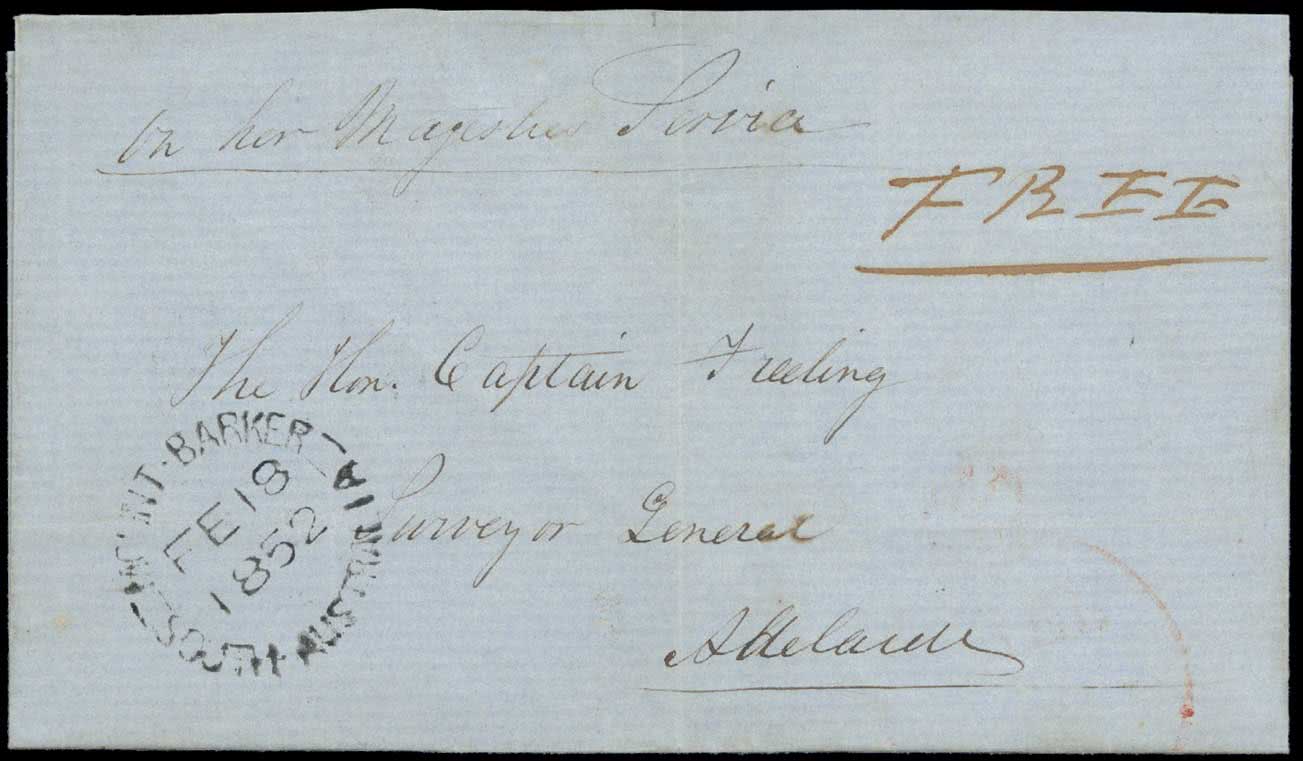 On her Magesties Service
FREE
The Hon. Captain Freeling
MOUNT-BARKER
FE 18
1852
SOUTH AUSTRALIA
Surveyor General
Adelaide